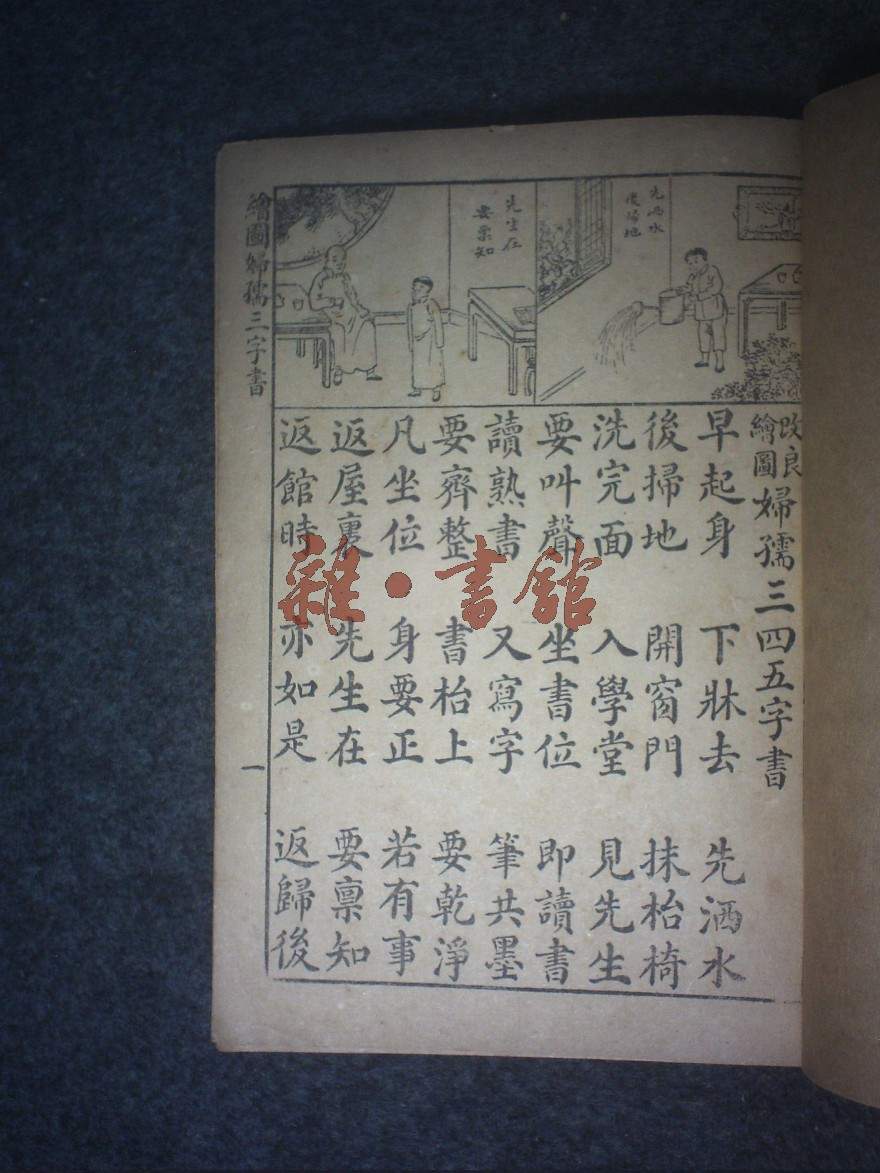 先洒水
後掃地
先生在
要稟知
改良
繪圖
婦孺三四五字書
早起身 下牀去 先洒水
後掃地 開窗門 抹枱椅
洗完面 入學堂 見先生
要叫聲 坐書位 即讀書
讀熟書 又寫字 筆共墨
要齊整 書枱上 要乾淨
凡坐位 身要正 若有事
返屋裏 先生在 要禀知
返館時 亦如是 返歸後
繪圖婦孺三字書
一
雜·書館